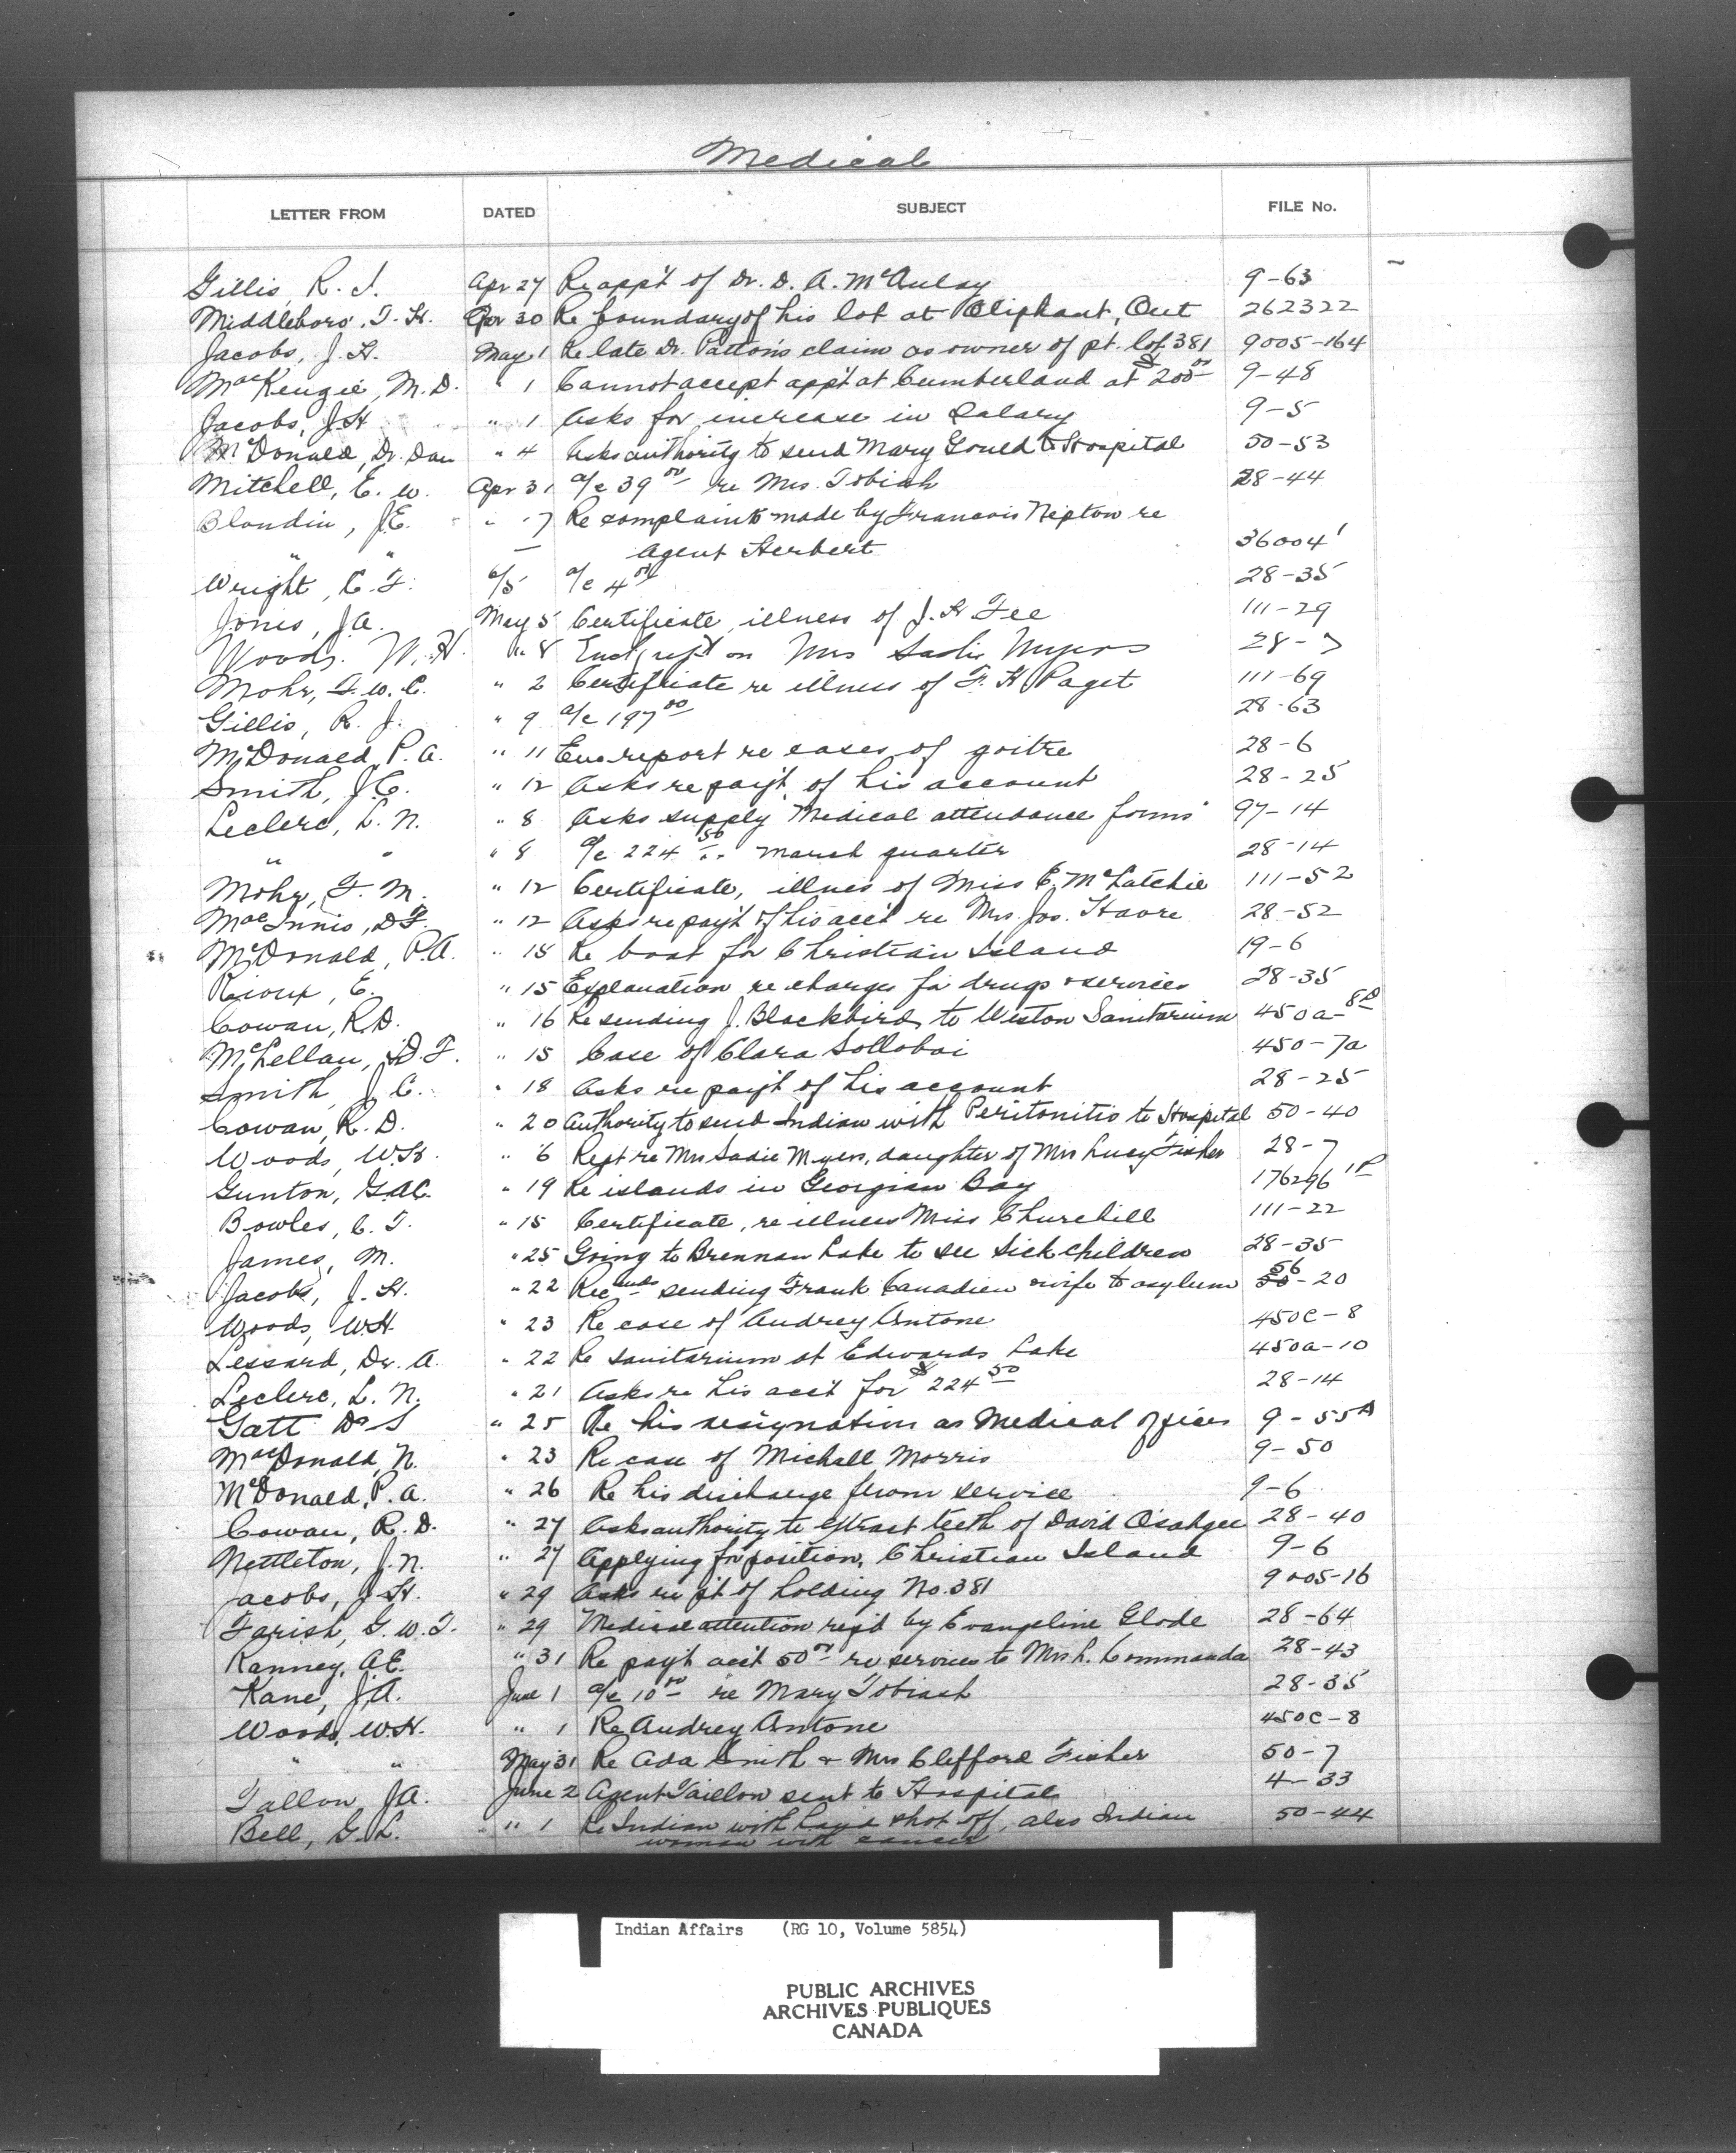 Medical
LETTER FROM DATED SUBJECT FILE No.
Gillis, R. J. Apr 27 Re app't of Dr. D. A. McAulay 9-63
Middleboro, T. H. Apr 30 Re boundary of his lot at Oliphant, Ont 262322
Jacobs, J. H. May 1 Re late Dr. Patton's claim as owner of pt. lot 381 9005-164
MacKenzie, M. D. " 1 Cannot accept app't at Cumberland at $200 00 9-48
Jacobs, J. H " 1 Asks for increase in Salary 9-5
McDonald, Dr. Dan " 4 Asks authority to send Mary Gould to Hospital 50-53
Mitchell, E. W. Apr 31 a/c 39 00 re Mrs. Tobiah 28-44
Blondin, J.E. " 7 Re complaints made by Francois Nepton re
" " Agent Herbert 36004'
Wright, C. F. 6/5 a/c 4 00 28-35
Jones, J.A. May 5 Certificate, illness of J. H Fee 111-29
Woods. W. H. " 8 on Mrs Sadie Myers 28-7
Mohr, F. W. C. " 2 Certificate re illness of F. H Paget 111-69
Gillis, R. J. " 9 a/c 197 00 28-63
McDonald, P. A. " 11 Enc report re cases of goitre 28-6
Smith, J.C. " 12 Asks re pay't of his account 28-25
Leclerc, L. N. " 8 Asks supply "Medical attendance forms" 97-14
" " " 8 a/c 224 50 March quarter 28-14
Mohr, F. M. " 12 Certificate, illnes of Miss E. McLatchie 111-52
MacInnis, D F. " 12 Asks re pay't of his acc't re Mrs. Jos. Haore 28-52
McDonald, P.A. " 18 Re boat for Christian Island 19-6
Rioux, E. " 15 Explanation re charges for drugs & services 28-35
Cowan, R.D. " 16 Re sending J. Blackbird to Weston Sanitarium 450a-8
McLellan, D. F. " 15 Case of Clara Solloboi 450-7a
Smith J C. " 18 Asks re pay't of his account 28-25
Cowan, R. D. " 20 Authority to send Indian with Peritonitis to Hospital 50-40
Woods, W.H. " 6 Rept re Mrs Sadie Myers, daughter of Mrs Lucy Fisher 28-7
Gunton, G.A.C. " 19 Re islands in Georgian Bay 176296 1P
Bowles, C. T. " 15 Certificate, re illness Miss Churchill 111-22
James, M. " 25 Going to Brennan Lake to see sick children 28-35
Jacobs, J. H. " 22 Recends sending Frank Canadien wife to asylum 56-20
Woods, W.H. " 23 Re case of Audrey Antone 450C-8
Lessard, Dr. A. " 22 Re sanitarium at Edwards Lake 450a-10
Leclerc, L. N. " 21 Asks re his acc't for $224 50 28-14
Gatt Dr S " 25 Re his resignation as Medical officer 9-55A
MacDonald, N. " 23 Re case of Michall Morris 9-50
McDonald, P. A. " 26 Re his discharge from service 9-6
Cowan, R. D. " 27 Asks authority to extract teeth of David Osahgee 28-40
Nettleton, J. N. " 27 Applying for position, Christian Island 9-6
Jacobs, J. H. " 29 Asks re pt of holding No. 381 9005-16
Farish, G. W. T. " 29 Medical attention req'd by Evangeline Glode 28-64
Ranney, A.E. " 31 Re pay't acc't 50 00 re services to Mrs L. Commanda 28-43
Kane, J.A. June 1 a/c 10 00 re Mary Tobiash 28-35
Woods, W.H. " 1 Re Audrey Antone 450C-8
" " May 31 Re Ada Smith & Mrs Clifford Fisher 50-7
Tallon, J.A. June 2 Agent Taillon sent to Hospital 4-33
Bell, G. L. " 1 Re Indian with hand shot off, also Indian 50-44
woman with cancer
Indian Affairs (RG 10, Volume 5854)
PUBLIC ARCHIVES
ARCHIVES PUBLIQUES
CANADA